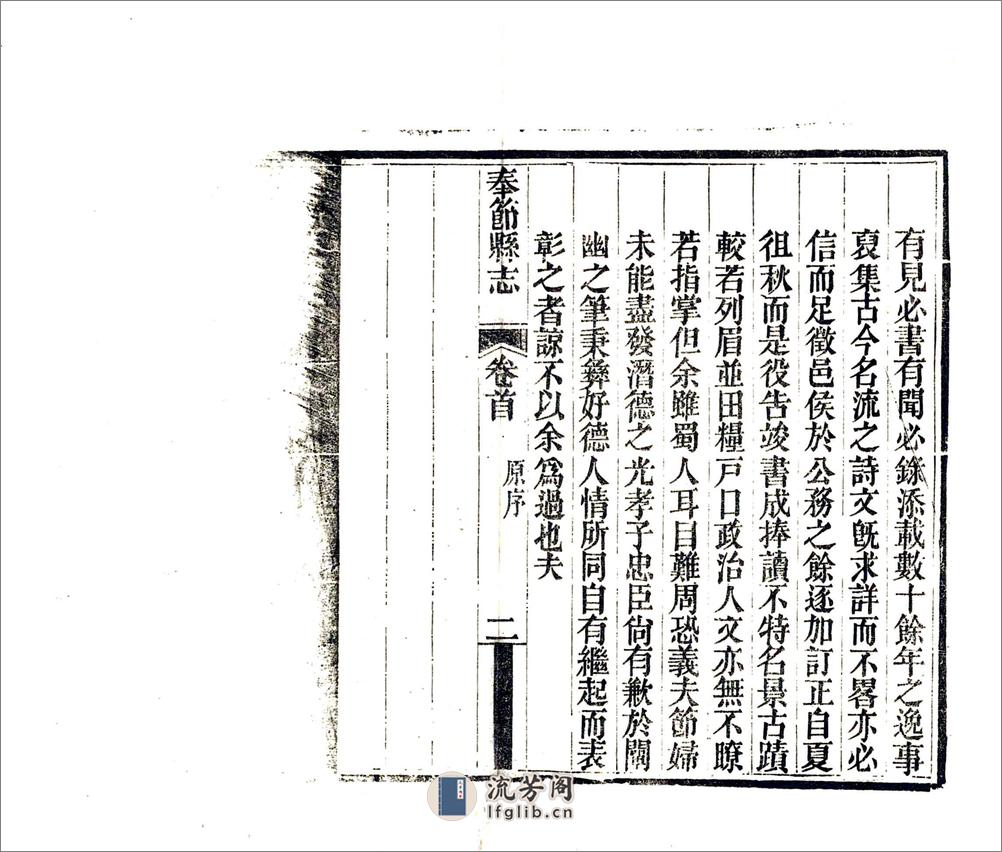 有見必書有聞必錄添載數十餘年之逸事
裒集古今名流之詩文旣求詳而不畧亦必
信而足徵邑侯於公務之餘逐加訂正自夏
徂秋而是役告竣書成捧讀不特名景古蹟
較若列眉並田糧戸口政治人文亦無不瞭
若指掌但余雖蜀人耳目難周恐義夫節婦
未能盡發潛德之光孝子忠臣尙有歉於闡
幽之筆秉彝好德人情所同自有繼起而表
彰之者諒不以余爲過也夫
奉節縣志
卷首
原序
二
流芳阁
lfglib.cn